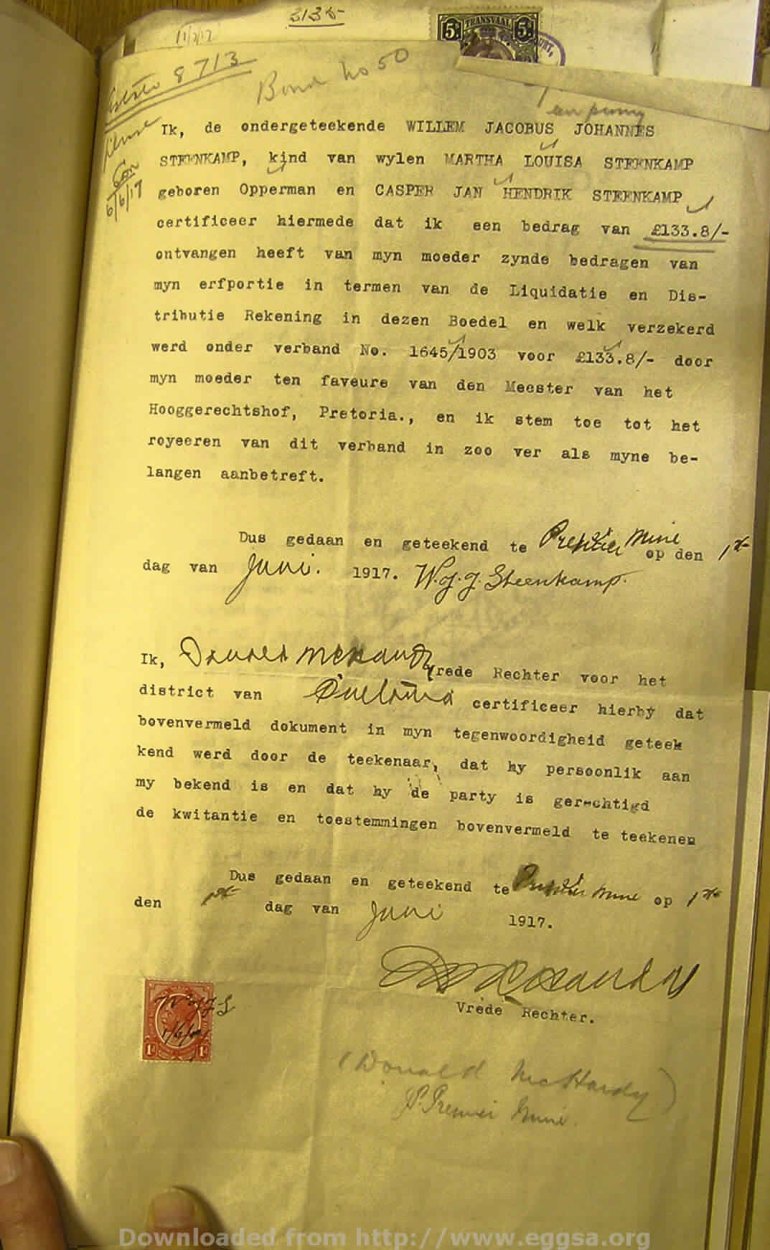 3135
11/7/17
5s TRANSVAAL 5s
8713
Bond No 50
please
6/6/17
Ik, de ondergeteekende WILLEM JACOBUS JOHANNES
STEENKAMP, kind van wylen MARTHA LOUISA STEENKAMP
geboren Opperman en CASPER JAN HENDRIK STEENKAMP
certificeer hiermede dat ik een bedrag van £133.8/-
ontvangen heeft van myn moeder zynde bedragen van
myn erfportie in termen van de Liquidatie en Dis-
tributie Rekening in dezen Boedel en welk verzekerd
werd onder verband No. 1645/1903 voor £133.8/- door
myn moeder ten faveure van den Meester van het
Hooggerechtshof, Pretoria., en ik stem toe tot het
royeeren van dit verband in zoo ver als myne be-
langen aanbetreft.
Dus gedaan en geteekend te Premier Mine op den 1st
dag van Juni. 1917. W.J.J. Steenkamp.
Ik, Donald McHardy Vrede Rechter voor het
district van certificeer hierby dat
bovenvermeld dokument in myn tegenwoordigheid geteek
kend werd door de teekenaar, dat hy persoonlik aan
my bekend is en dat hy de party is gerechtigd
de kwitantie en toestemmingen bovenvermeld te teekenen
Dus gedaan en geteekend te Premier Mine op 1st
den 1st dag van Juni 1917.
Vrede Rechter.
W.J.J.S
1/6/17
1d 1d
(Donald McHardy)
Premier Mine.
Downloaded from http://www.eggsa.org